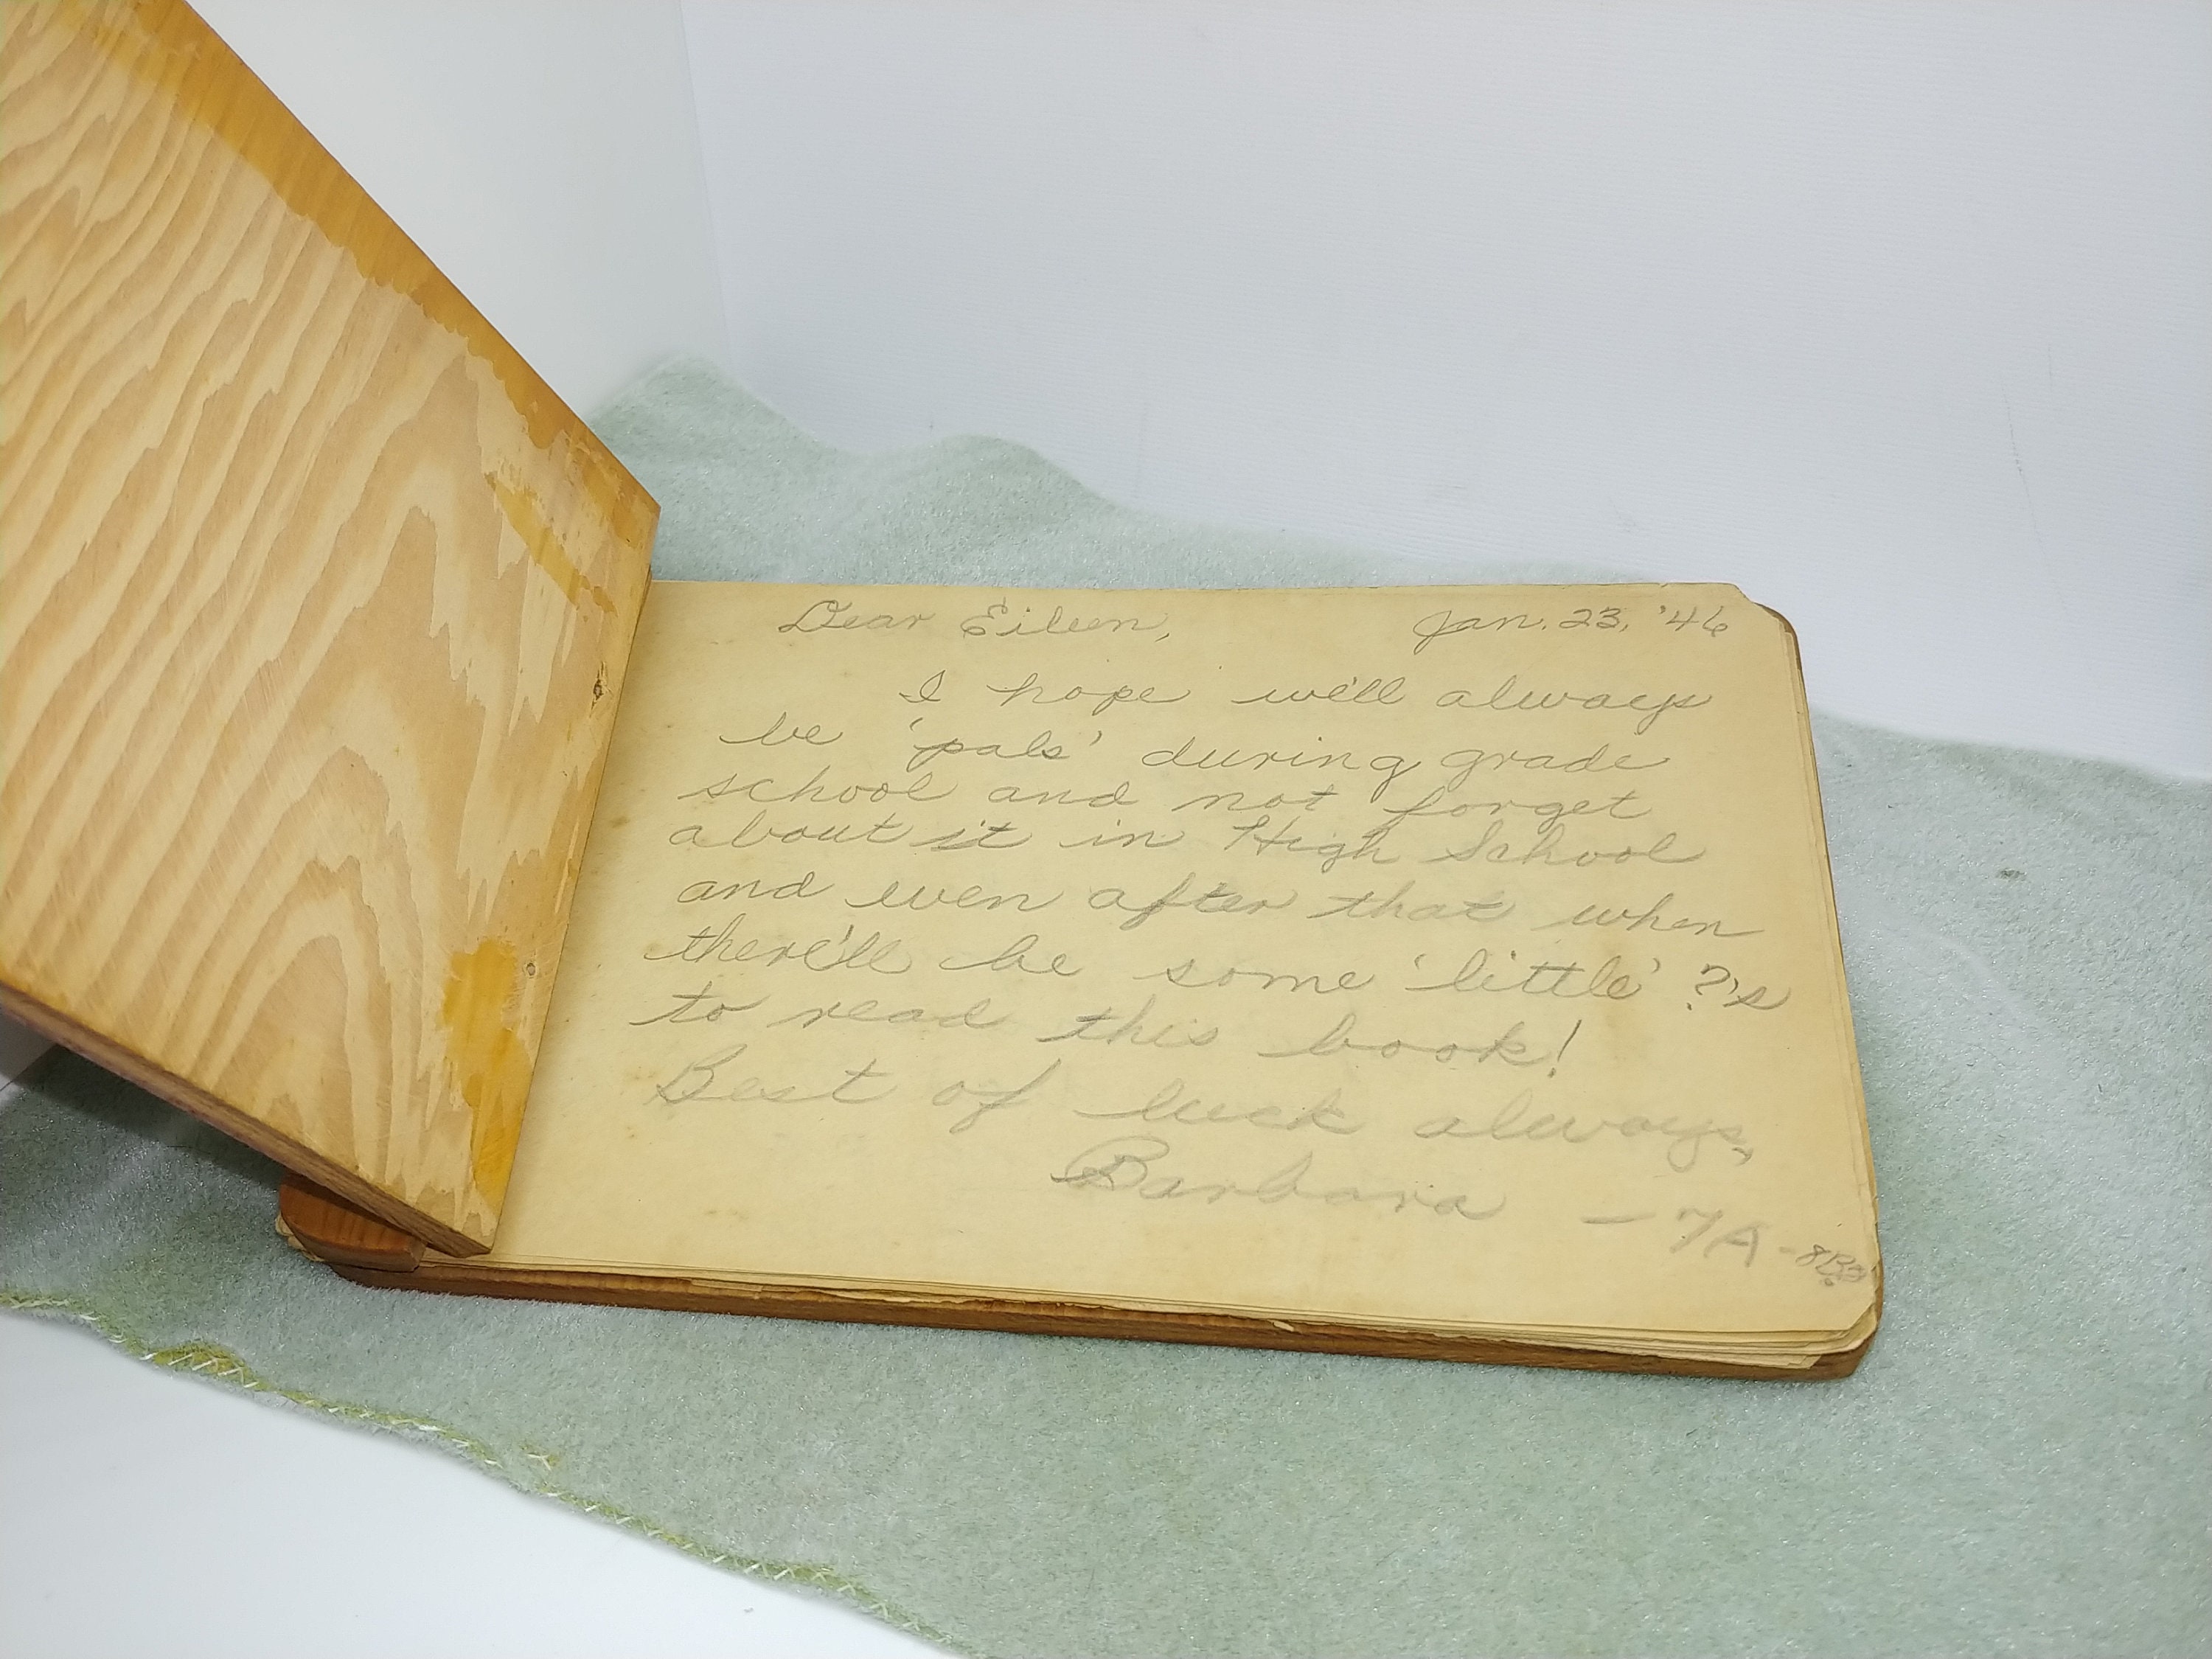 Dear Eileen, Jan. 23, '46
I hope we'll always
be 'pals' during grade
school and not forget
about it in High School
and even after that when
there'll be some 'little' ?'s
to read this book!
Best of luck always,
Barbara - 7A - 8B